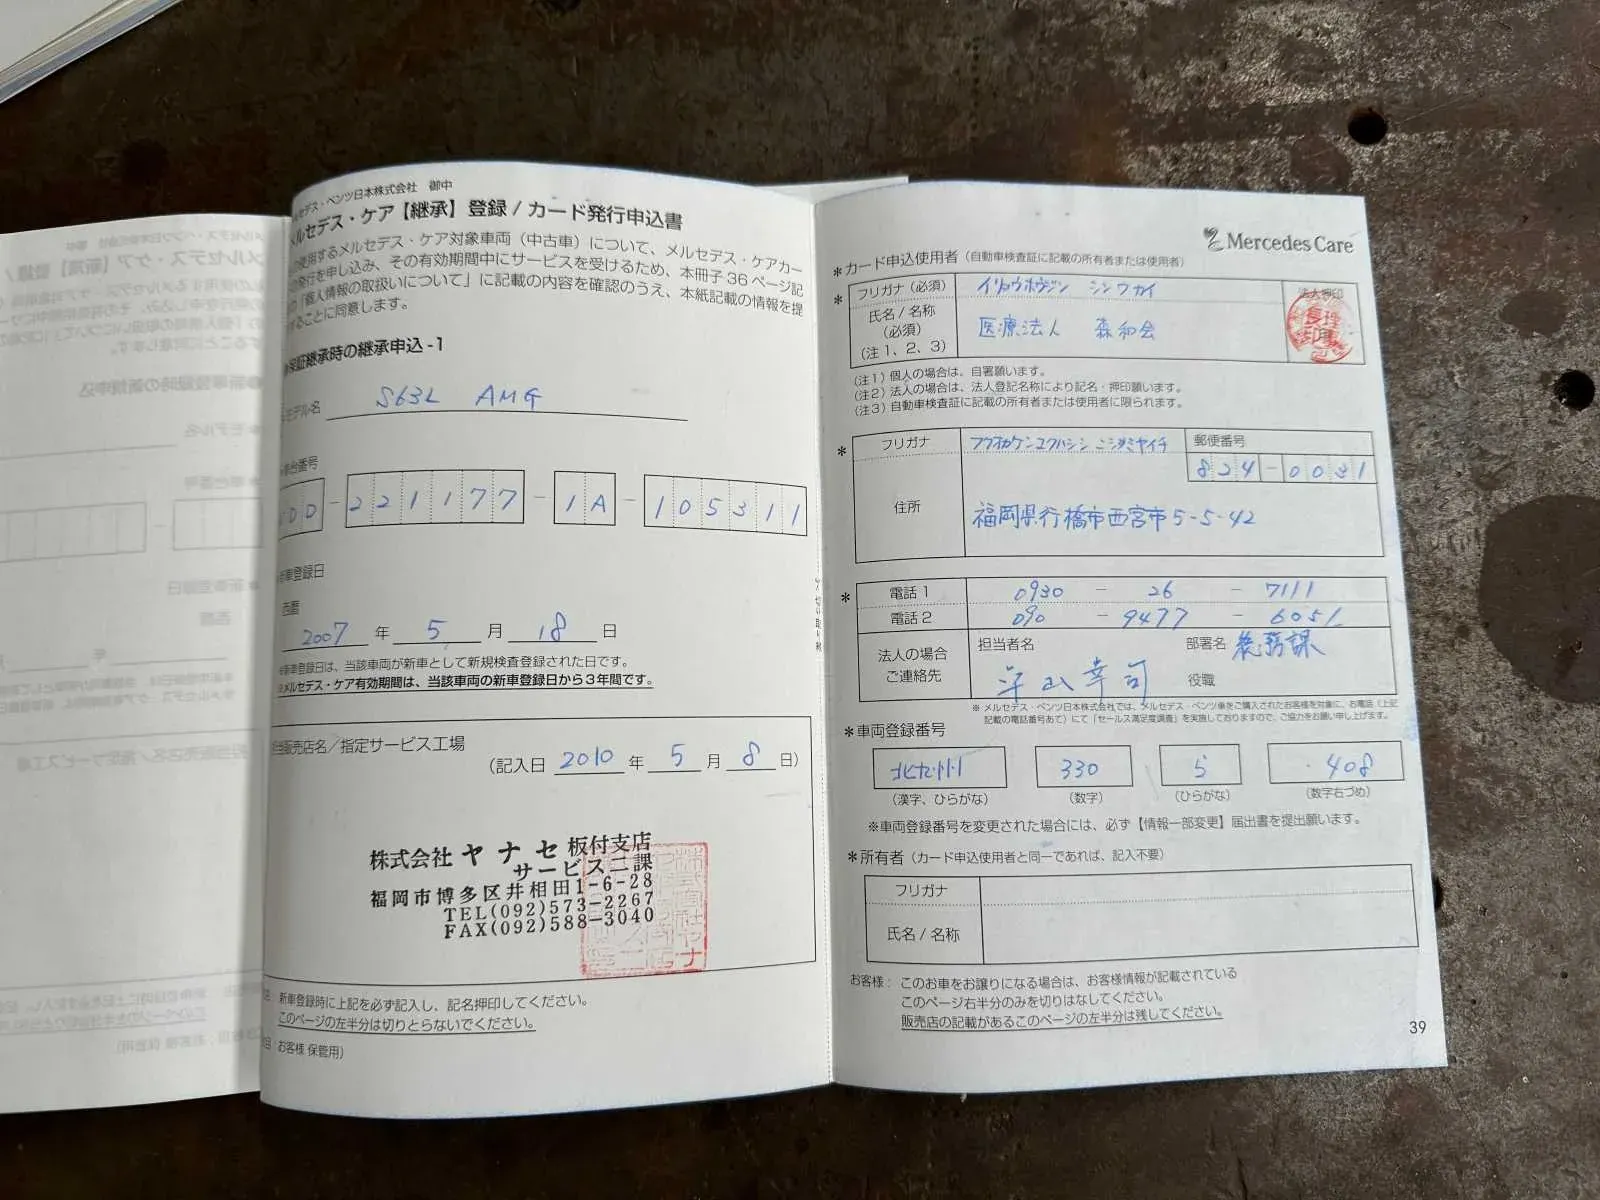 メルセデス・ベンツ日本株式会社 御中
メルセデス・ケア【継承】登録 / カード発行申込書
使用するメルセデス・ケア対象車両（中古車）について、メルセデス・ケアカー
発行を申し込み、その有効期間中にサービスを受けるため、本冊子36ページ記
「個人情報の取扱いについて」に記載の内容を確認のうえ、本紙記載の情報を提
することに同意します。
保証継承時の継承申込 -1
モデル名 S63L AMG
車台番号
DD - 221177 - 1A - 105311
新車登録日
西暦
2007 年 5 月 18 日
※新車登録日は、当該車両が新車として新規検査登録された日です。
※メルセデス・ケア有効期間は、当該車両の新車登録日から3年間です。
販売店名／指定サービス工場
（記入日 2010 年 5 月 8 日）
株式会社 ヤナセ 板付支店
サービス二課
福岡市博多区井相田1-6-28
TEL(092)573-2267
FAX(092)588-3040
新車登録時に上記を必ず記入し、記名押印してください。
このページの左半分は切りとらないでください。
お客様 保管用）
Mercedes Care
＊カード申込使用者（自動車検査証に記載の所有者または使用者）
＊ フリガナ（必須） イリョウホウジン シンワカイ
法人押印
氏名 / 名称
（必須）
（注1、2、3）
医療法人 森和会
（注1）個人の場合は、自署願います。
（注2）法人の場合は、法人登記名称により記名・押印願います。
（注3）自動車検査証に記載の所有者または使用者に限られます。
＊ フリガナ フクオカケンユクハシシ ニシミヤイチ 郵便番号
824-0031
住所 福岡県行橋市西宮市5-5-42
＊ 電話1 0930 - 26 - 7111
電話2 090 - 9477 - 6051
法人の場合
ご連絡先
担当者名 部署名
平山幸司 役職
※ メルセデス・ベンツ日本株式会社では、メルセデス・ベンツ車をご購入されたお客様を対象に、お電話（上記
記載の電話番号あて）にて「セールス満足度調査」を実施しておりますので、ご協力をお願い申し上げます。
＊車両登録番号
北九州 330 408
（漢字、ひらがな） （数字） （ひらがな） （数字右づめ）
※車両登録番号を変更された場合には、必ず【情報一部変更】届出書を提出願います。
＊所有者（カード申込使用者と同一であれば、記入不要）
フリガナ
氏名 / 名称
お客様： このお車をお譲りになる場合は、お客様情報が記載されている
このページ右半分のみを切りはなしてください。
販売店の記載があるこのページの左半分は残してください。
39